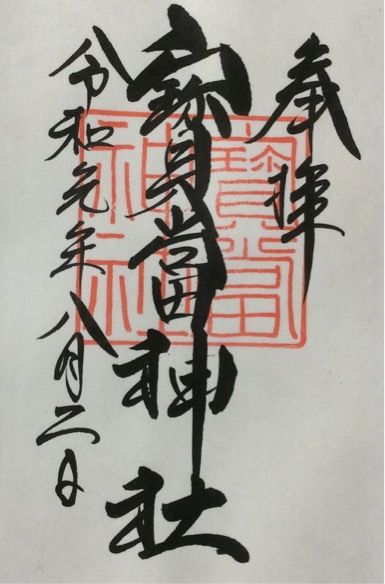 奉拝
寳當神社
令和元年八月二日
寳當
神社